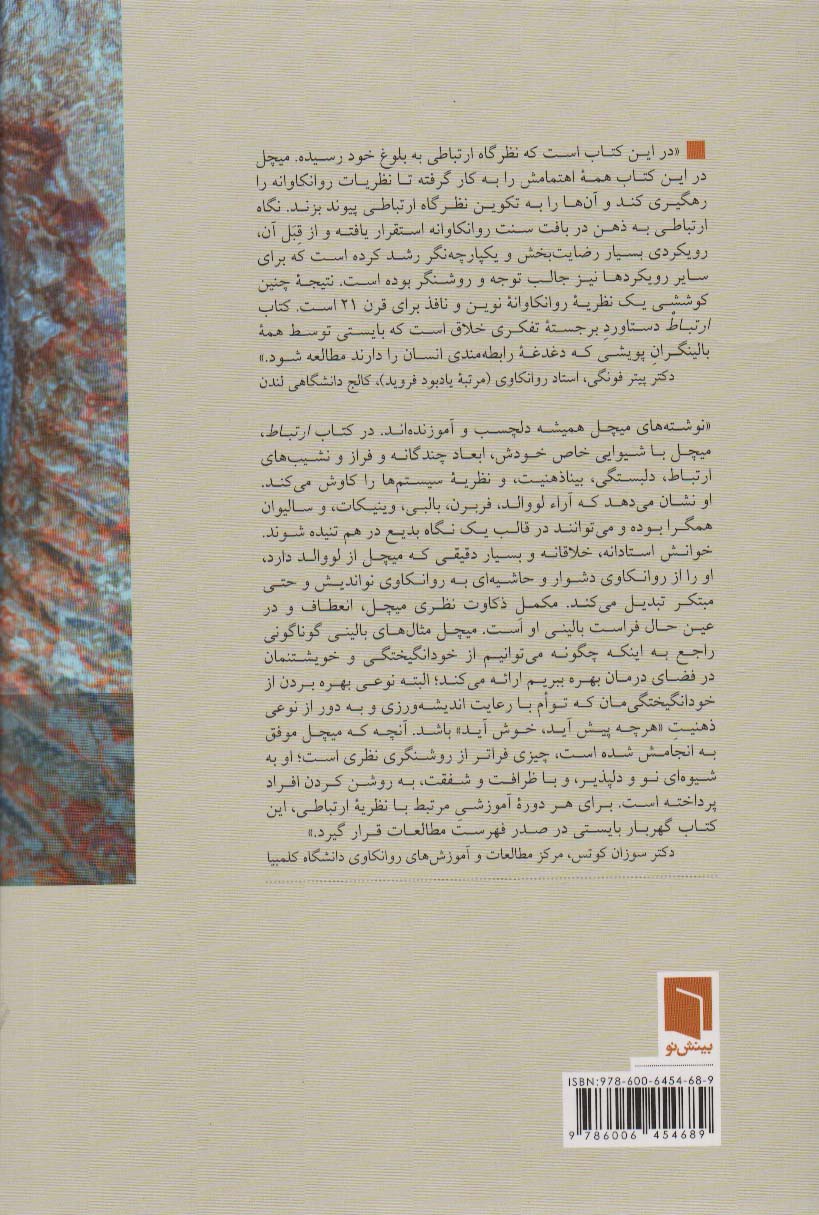 «در این کتاب است که نظرگاه ارتباطی به بلوغ خود رسیده. میچل
در این کتاب همهٔ اهتمامش را به کار گرفته تا نظریات روانکاوانه را
رهگیری کند و آن‌ها را به تکوین نظرگاه ارتباطی پیوند بزند. نگاه
ارتباطی به ذهن در بافت سنت روانکاوانه استقرار یافته و از قِبَل آن،
رویکردی بسیار رضایت‌بخش و یکپارچه‌نگر رشد کرده است که برای
سایر رویکردها نیز جالب توجه و روشنگر بوده است. نتیجهٔ چنین
کوششی یک نظریهٔ روانکاوانهٔ نوین و نافذ برای قرن ۲۱ است. کتاب
ارتباطْ دستاوردِ برجستهٔ تفکری خلاق است که بایستی توسط همهٔ
بالینگرانِ پویشی که دغدغهٔ رابطه‌مندی انسان را دارند مطالعه شود.»
دکتر پیتر فونگی، استاد روانکاوی (مرتبهٔ یادبود فروید)، کالج دانشگاهی لندن
«نوشته‌های میچل همیشه دلچسب و آموزنده‌اند. در کتاب ارتباط،
میچل با شیوایی خاص خودش، ابعاد چندگانه و فراز و نشیب‌های
ارتباط، دلبستگی، بیناذهنیت، و نظریهٔ سیستم‌ها را کاوش می‌کند.
او نشان می‌دهد که آراء لووالد، فربرن، بالبی، وینیکات، و سالیوان
همگرا بوده و می‌توانند در قالب یک نگاه بدیع در هم تنیده شوند.
خوانش استادانه، خلاقانه و بسیار دقیقی که میچل از لووالد دارد،
او را از روانکاوی دشوار و حاشیه‌ای به روانکاوی نواندیش و حتی
مبتکر تبدیل می‌کند. مکملِ ذکاوت نظری میچل، انعطاف و در
عین حال فراست بالینی او است. میچل مثال‌های بالینی گوناگونی
راجع به اینکه چگونه می‌توانیم از خودانگیختگی و خویشتنمان
در فضای درمان بهره ببریم ارائه می‌کند؛ البته نوعی بهره بردن از
خودانگیختگی‌مان که توأم با رعایت اندیشه‌ورزی و به دور از نوعی
ذهنیتِ «هرچه پیش آید، خوش آید» باشد. آنچه که میچل موفق
به انجامش شده است، چیزی فراتر از روشنگری نظری است؛ او به
شیوه‌ای نو و دلپذیر، و با ظرافت و شفقت، به روشن کردن افراد
پرداخته است. برای هر دورهٔ آموزشیِ مرتبط با نظریهٔ ارتباطی، این
کتاب گهربار بایستی در صدر فهرست مطالعات قرار گیرد.»
دکتر سوزان کوتس، مرکز مطالعات و آموزش‌های روانکاوی دانشگاه کلمبیا
بینش‌نو
ISBN:978-600-6454-68-9
9 786006 454689